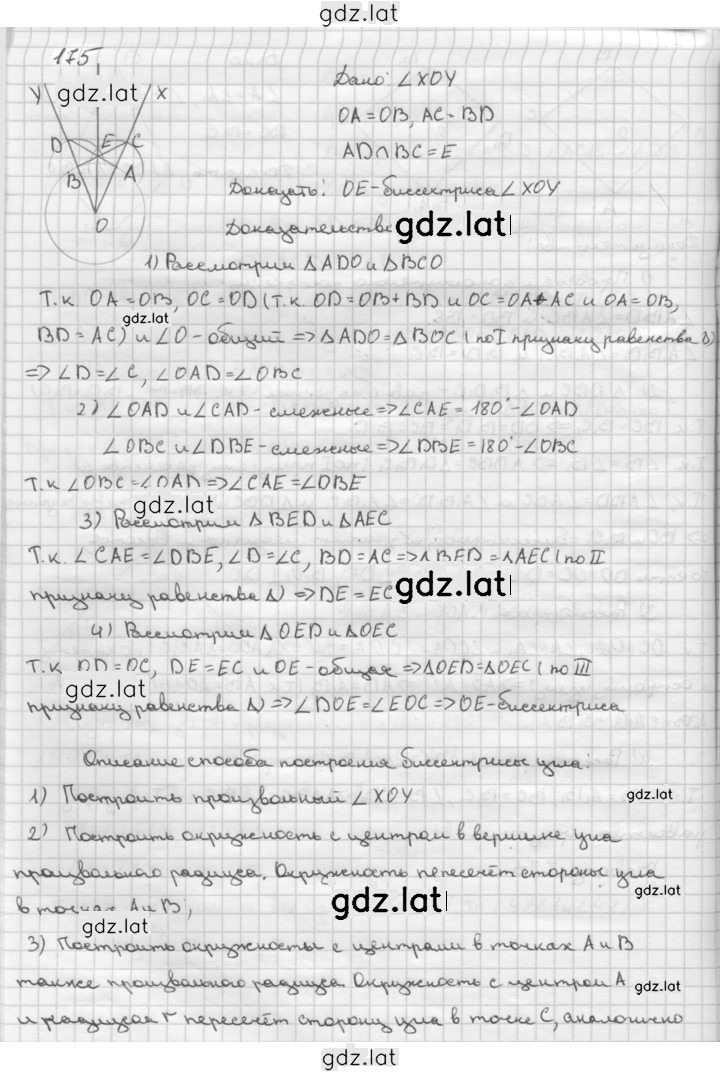 gdz.lat
175
y gdz.lat x
D E C
B A
O
Дано: ∠XOY
OA=OB, AC=BD
AD∩BC=E
Доказать: OE-биссектриса ∠XOY
Доказательство gdz.lat
1) Рассмотрим △ADO и △BCO
Т.к OA=OB, OC=OD (т.к. OD=OB+BD и OC=OA+AC и OA=OB,
gdz.lat
BD=AC) и ∠O-общий => △ADO=△BOC (по I признаку равенства △)
=> ∠D=∠C, ∠OAD=∠OBC
2) ∠OAD и ∠CAD-смежные => ∠CAE=180°-∠OAD
∠OBC и ∠DBE-смежные => ∠DBE=180°-∠OBC
Т.к ∠OBC=∠OAD => ∠CAE=∠OBE
gdz.lat
3) Рассмотрим △BED и △AEC
Т.к. ∠CAE=∠DBE, ∠D=∠C, BD=AC => △BED=△AEC (по II
признаку равенства △) => DE=EC gdz.lat
4) Рассмотрим △OED и △OEC
Т.к OD=OC, DE=EC и OE-общая => △OED=△OEC (по III
gdz.lat
признаку равенства △) => ∠DOE=∠EOC => OE-биссектриса
Описание способа построения биссектрисы угла:
1) Построить произвольный ∠XOY gdz.lat
2) Построить окружность с центром в вершине угла
произвольного радиуса. Окружность пересечёт стороны угла
gdz.lat
в точках A и B; gdz.lat
gdz.lat
3) Построить окружносты с центрами в точках A и B
также произвольного радиуса. Окружность с центром A gdz.lat
и радиусом r пересечёт сторону угла в точке C, аналогично
gdz.lat